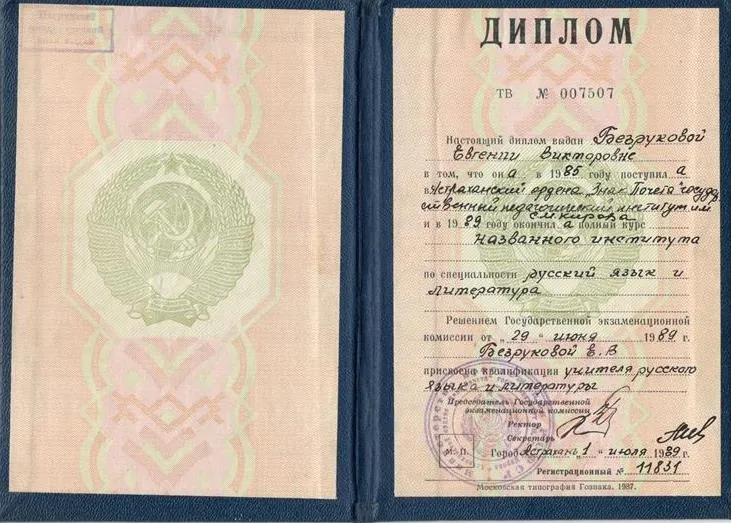 ДИПЛОМ
ТВ № 007507
Настоящий диплом выдан Безруковой
Евгении Викторовне
в том, что она в 1985 году поступила
в Астраханский ордена „Знак Почета" государ
ственный педагогический институт им.
С.М.Кирова
и в 1989 году окончила полный курс
названного института
по специальности русский язык и
литература
Решением Государственной экзаменационной
комиссии от „29" июня 1989 г.
Безруковой Е.В
присвоена квалификация учителя русского
языка и литературы
Председатель Государственной
экзаменационной комиссии
Ректор
Секретарь
М. П.
Город Астрахань „1" июля 1989 г.
Регистрационный № 11831
Московская типография Гознака. 1987.